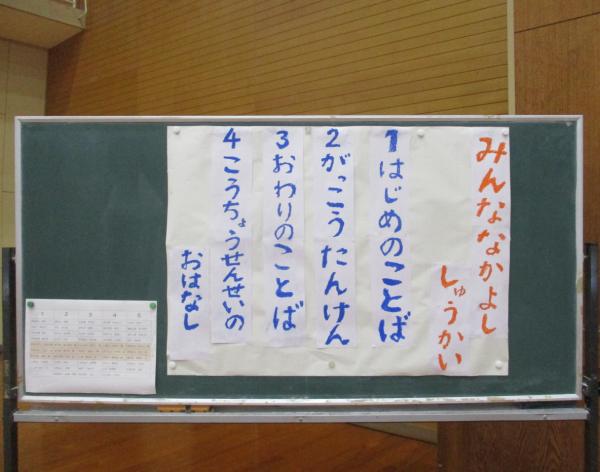 みんななかよし
しゅうかい
1はじめのことば
2がっこうたんけん
3おわりのことば
4こうちょうせんせいの
おはなし
1 2 3 4 5